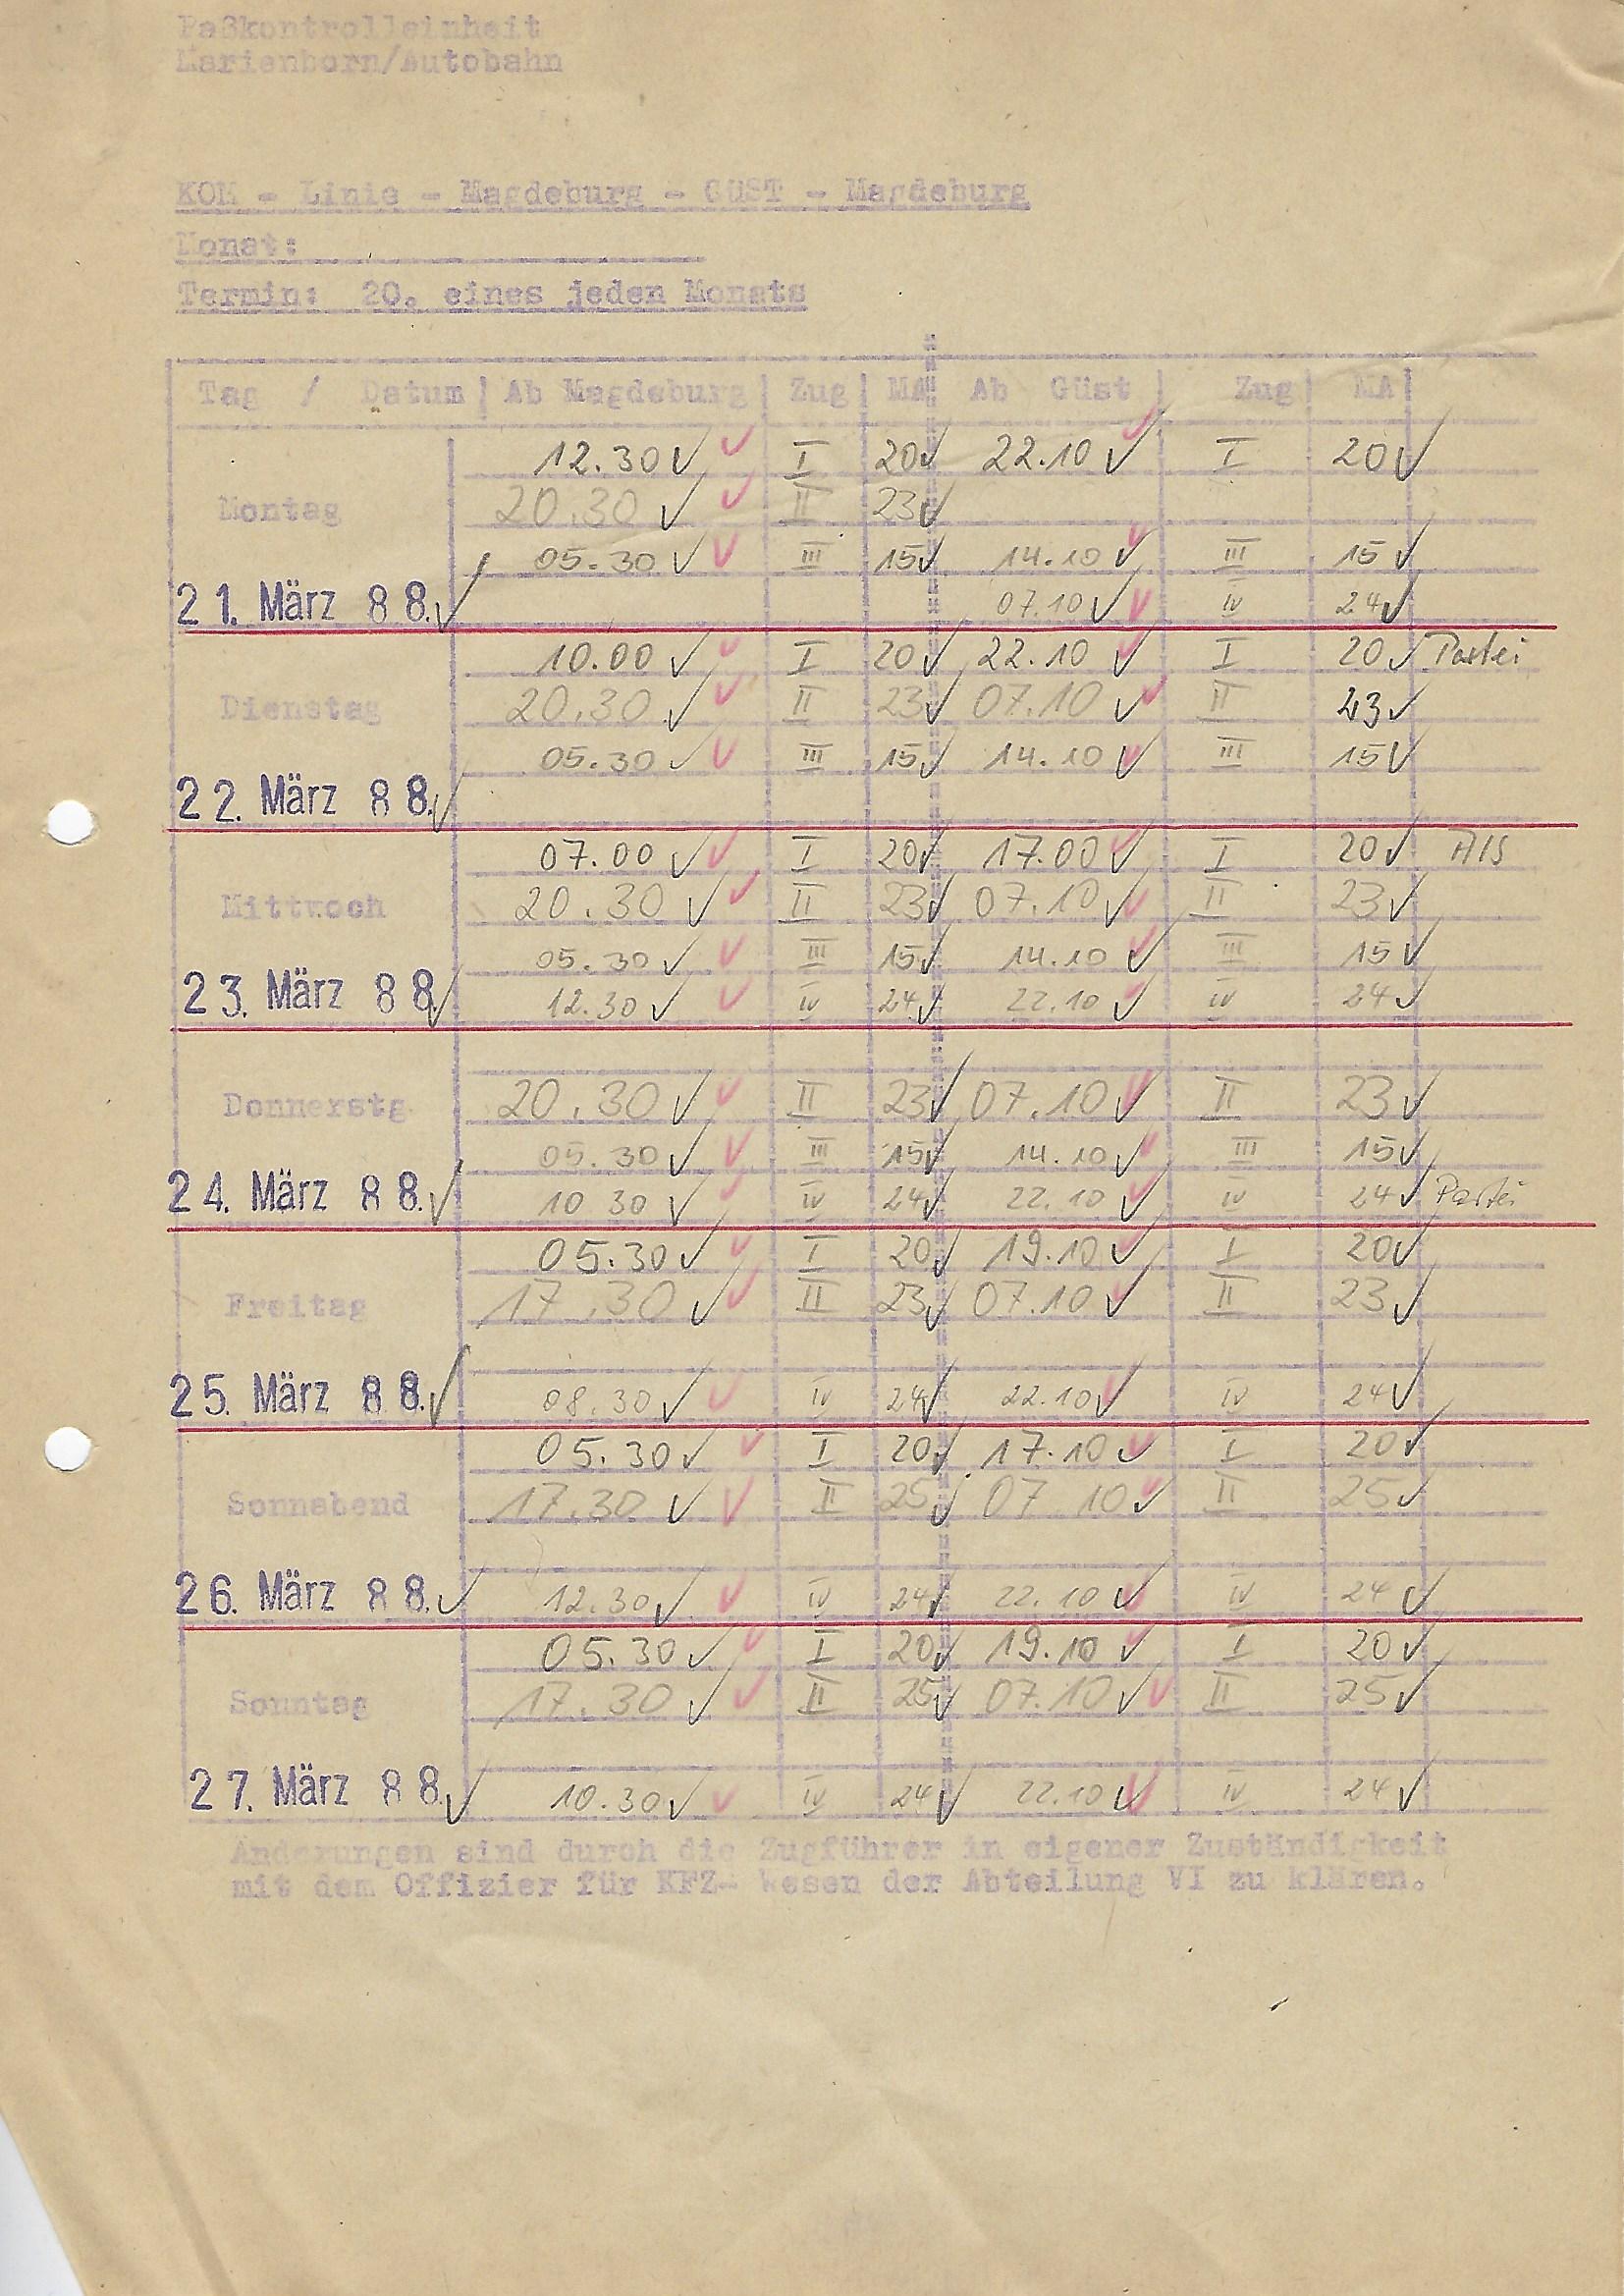 Paßkontrolleinheit
Marienborn/Autobahn
KOM - Linie - Magdeburg - GÜST - Magdeburg
Monat:
Termin: 20. eines jeden Monats
Tag / Datum Ab Magdeburg Zug MA Ab Güst Zug MA
12.30 ✓ ✓ I 20 ✓ 22.10 ✓ ✓ I 20 ✓
Montag 20.30 ✓ ✓ II 23 ✓
05.30 ✓ ✓ III 15 ✓ 14.10 ✓ ✓ III 15 ✓
21. März 88. ✓ 07.10 ✓ ✓ IV 24 ✓
10.00 ✓ ✓ I 20 ✓ 22.10 ✓ ✓ I 20 ✓ Partei
Dienstag 20.30 ✓ ✓ II 23 ✓ 07.10 ✓ ✓ II 23 ✓
05.30 ✓ ✓ III 15 ✓ 14.10 ✓ ✓ III 15 ✓
22. März 88. ✓
07.00 ✓ ✓ I 20 ✓ 17.00 ✓ ✓ I 20 ✓
Mittwoch 20.30 ✓ ✓ II 23 ✓ 07.10 ✓ ✓ II 23 ✓
05.30 ✓ ✓ III 15 ✓ 14.10 ✓ ✓ III 15 ✓
23. März 88 ✓ 12.30 ✓ ✓ IV 24 ✓ 22.10 ✓ ✓ IV 24 ✓
Donnerstg 20.30 ✓ ✓ II 23 ✓ 07.10 ✓ ✓ II 23 ✓
05.30 ✓ ✓ III 15 ✓ 14.10 ✓ ✓ III 15 ✓
24. März 88. ✓ 10 30 ✓ ✓ IV 24 ✓ 22.10 ✓ ✓ IV 24 ✓ Partei
05.30 ✓ ✓ I 20 ✓ 19.10 ✓ ✓ I 20 ✓
Freitag 17.30 ✓ ✓ II 23 ✓ 07.10 ✓ ✓ II 23 ✓
25. März 88. ✓ 08.30 ✓ ✓ IV 24 ✓ 22.10 ✓ ✓ IV 24 ✓
05.30 ✓ ✓ I 20 ✓ 17.10 ✓ ✓ I 20 ✓
Sonnabend 17.30 ✓ ✓ II 25 ✓ 07 10 ✓ ✓ II 25 ✓
26. März 88. ✓ 12.30 ✓ ✓ IV 24 ✓ 22.10 ✓ ✓ IV 24 ✓
05.30 ✓ ✓ I 20 ✓ 19.10 ✓ ✓ I 20 ✓
Sonntag 17.30 ✓ ✓ II 25 ✓ 07.10 ✓ ✓ II 25 ✓
27. März 88. ✓ 10.30 ✓ ✓ IV 24 ✓ 22.10 ✓ ✓ IV 24 ✓
Änderungen sind durch die Zugführer in eigener Zuständigkeit
mit dem Offizier für KFZ- Wesen der Abteilung VI zu klären.